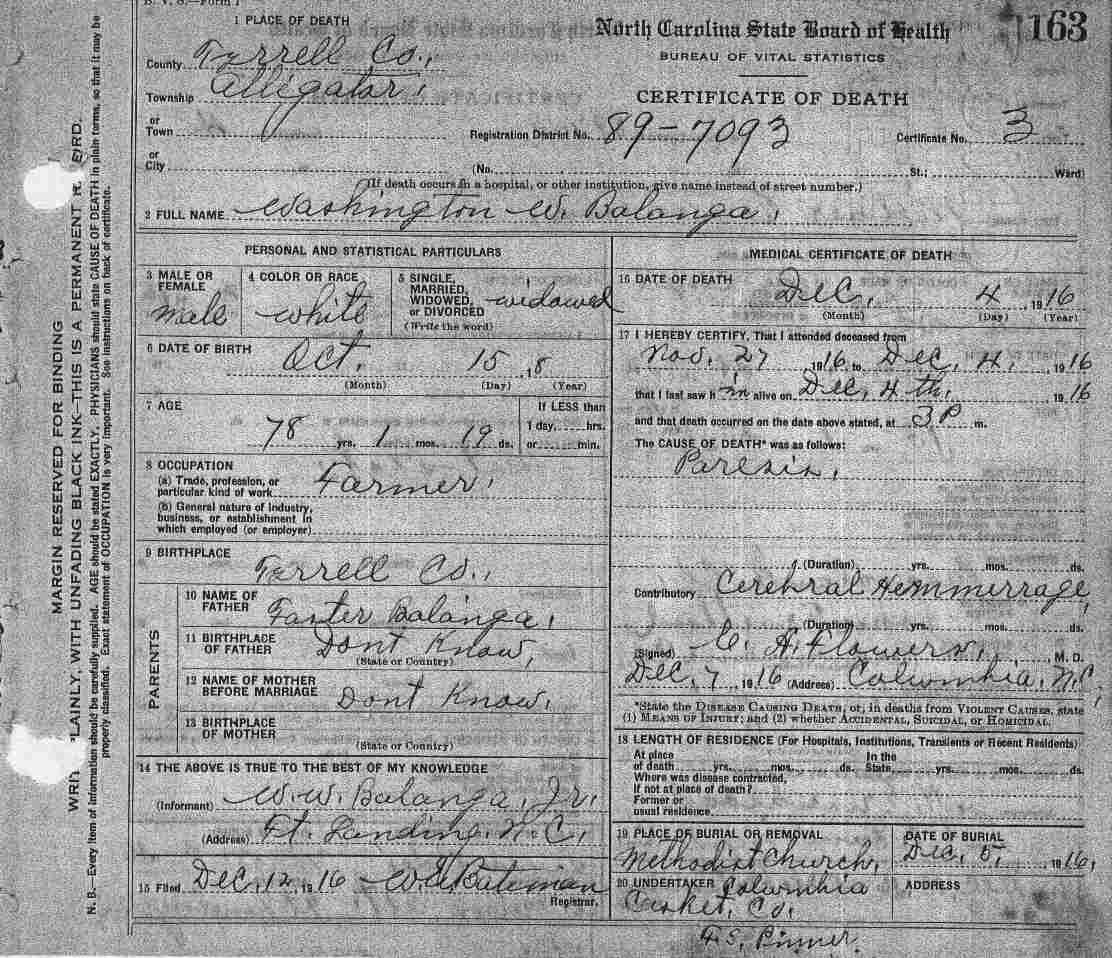 B. V. S.—Form 1
1 PLACE OF DEATH
North Carolina State Board of Health
163
BUREAU OF VITAL STATISTICS
County Tyrrell Co.,
Township Alligator,
CERTIFICATE OF DEATH
or
Town
Registration District No. 89-7093 Certificate No. 3
or
City (No. St.; Ward)
(If death occurs in a hospital, or other institution, give name instead of street number.)
2 FULL NAME Washington W. Balanga,
PERSONAL AND STATISTICAL PARTICULARS
3 MALE OR FEMALE male
4 COLOR OR RACE white
5 SINGLE, MARRIED, WIDOWED, or DIVORCED widowed
(Write the word)
6 DATE OF BIRTH Oct. 15, 18
(Month) (Day) (Year)
7 AGE
If LESS than
1 day, hrs.
78 yrs. 1 mos. 19 ds. or min.
8 OCCUPATION
(a) Trade, profession, or
particular kind of work Farmer,
(b) General nature of industry,
business, or establishment in
which employed (or employer)
9 BIRTHPLACE Tyrrell Co.,
PARENTS
10 NAME OF FATHER Foster Balanga,
11 BIRTHPLACE OF FATHER Dont Know,
(State or Country)
12 NAME OF MOTHER BEFORE MARRIAGE Dont Know,
13 BIRTHPLACE OF MOTHER
(State or Country)
14 THE ABOVE IS TRUE TO THE BEST OF MY KNOWLEDGE
(Informant) W. W. Balanga, Jr.
(Address) Ft. Landing, N. C.
15 Filed Dec. 12, 1916 Bateman
Registrar.
MEDICAL CERTIFICATE OF DEATH
16 DATE OF DEATH Dec. 4 1916
(Month) (Day) (Year)
17 I HEREBY CERTIFY, That I attended deceased from
Nov. 27 1916 to Dec. 4, 1916
that I last saw him alive on Dec. 4th, 1916
and that death occurred on the date above stated, at 3 P m.
The CAUSE OF DEATH* was as follows:
Paresis,
(Duration) yrs. mos. ds.
Contributory Cerebral Hemmerrage,
(Duration) yrs. mos. ds.
(Signed) C. A. Flowers, M. D.
Dec. 7, 1916 (Address) Columbia, N.C,
*State the DISEASE CAUSING DEATH, or, in deaths from VIOLENT CAUSES, state
(1) MEANS OF INJURY; and (2) whether ACCIDENTAL, SUICIDAL, or HOMICIDAL.
18 LENGTH OF RESIDENCE (For Hospitals, Institutions, Transients or Recent Residents)
At place In the
of death yrs. mos. ds. State, yrs. mos. ds.
Where was disease contracted,
If not at place of death?
Former or
usual residence
19 PLACE OF BURIAL OR REMOVAL
Methodist Church,
DATE OF BURIAL
Dec, 5, 1916,
20 UNDERTAKER Columbia
Casket, Co,
ADDRESS
F. S. Pinner
MARGIN RESERVED FOR BINDING
PLAINLY, WITH UNFADING BLACK INK—THIS IS A PERMANENT
N. B.—Every item of information should be carefully supplied. AGE should be stated EXACTLY. PHYSICIANS should state CAUSE OF DEATH in plain terms, so that it may be
properly classified. Exact statement of OCCUPATION is very important. See instructions on back of certificate.